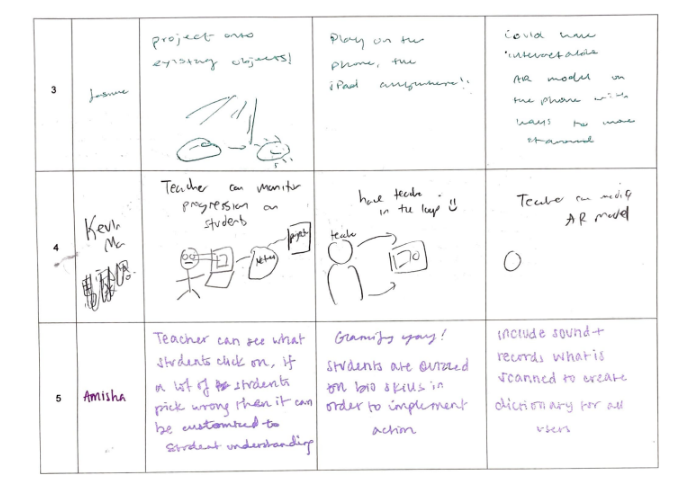 3
project onto
existing objects!
Play on the
phone, the
iPad anywhere!
Could have
AR model on
the phone with
ways to move
it around
4
Kevin
Ma
Teacher can monitor
progression on
students
have teacher
in the loop
teacher
Teacher can modify
AR model
5
Amisha
Teacher can see what
students click on, if
a lot of students
pick wrong then it can
be customized to
student understanding
Gamify yay!
students are quizzed
on bio skills in
order to implement
action
include sound +
records what is
scanned to create
dictionary for all
users